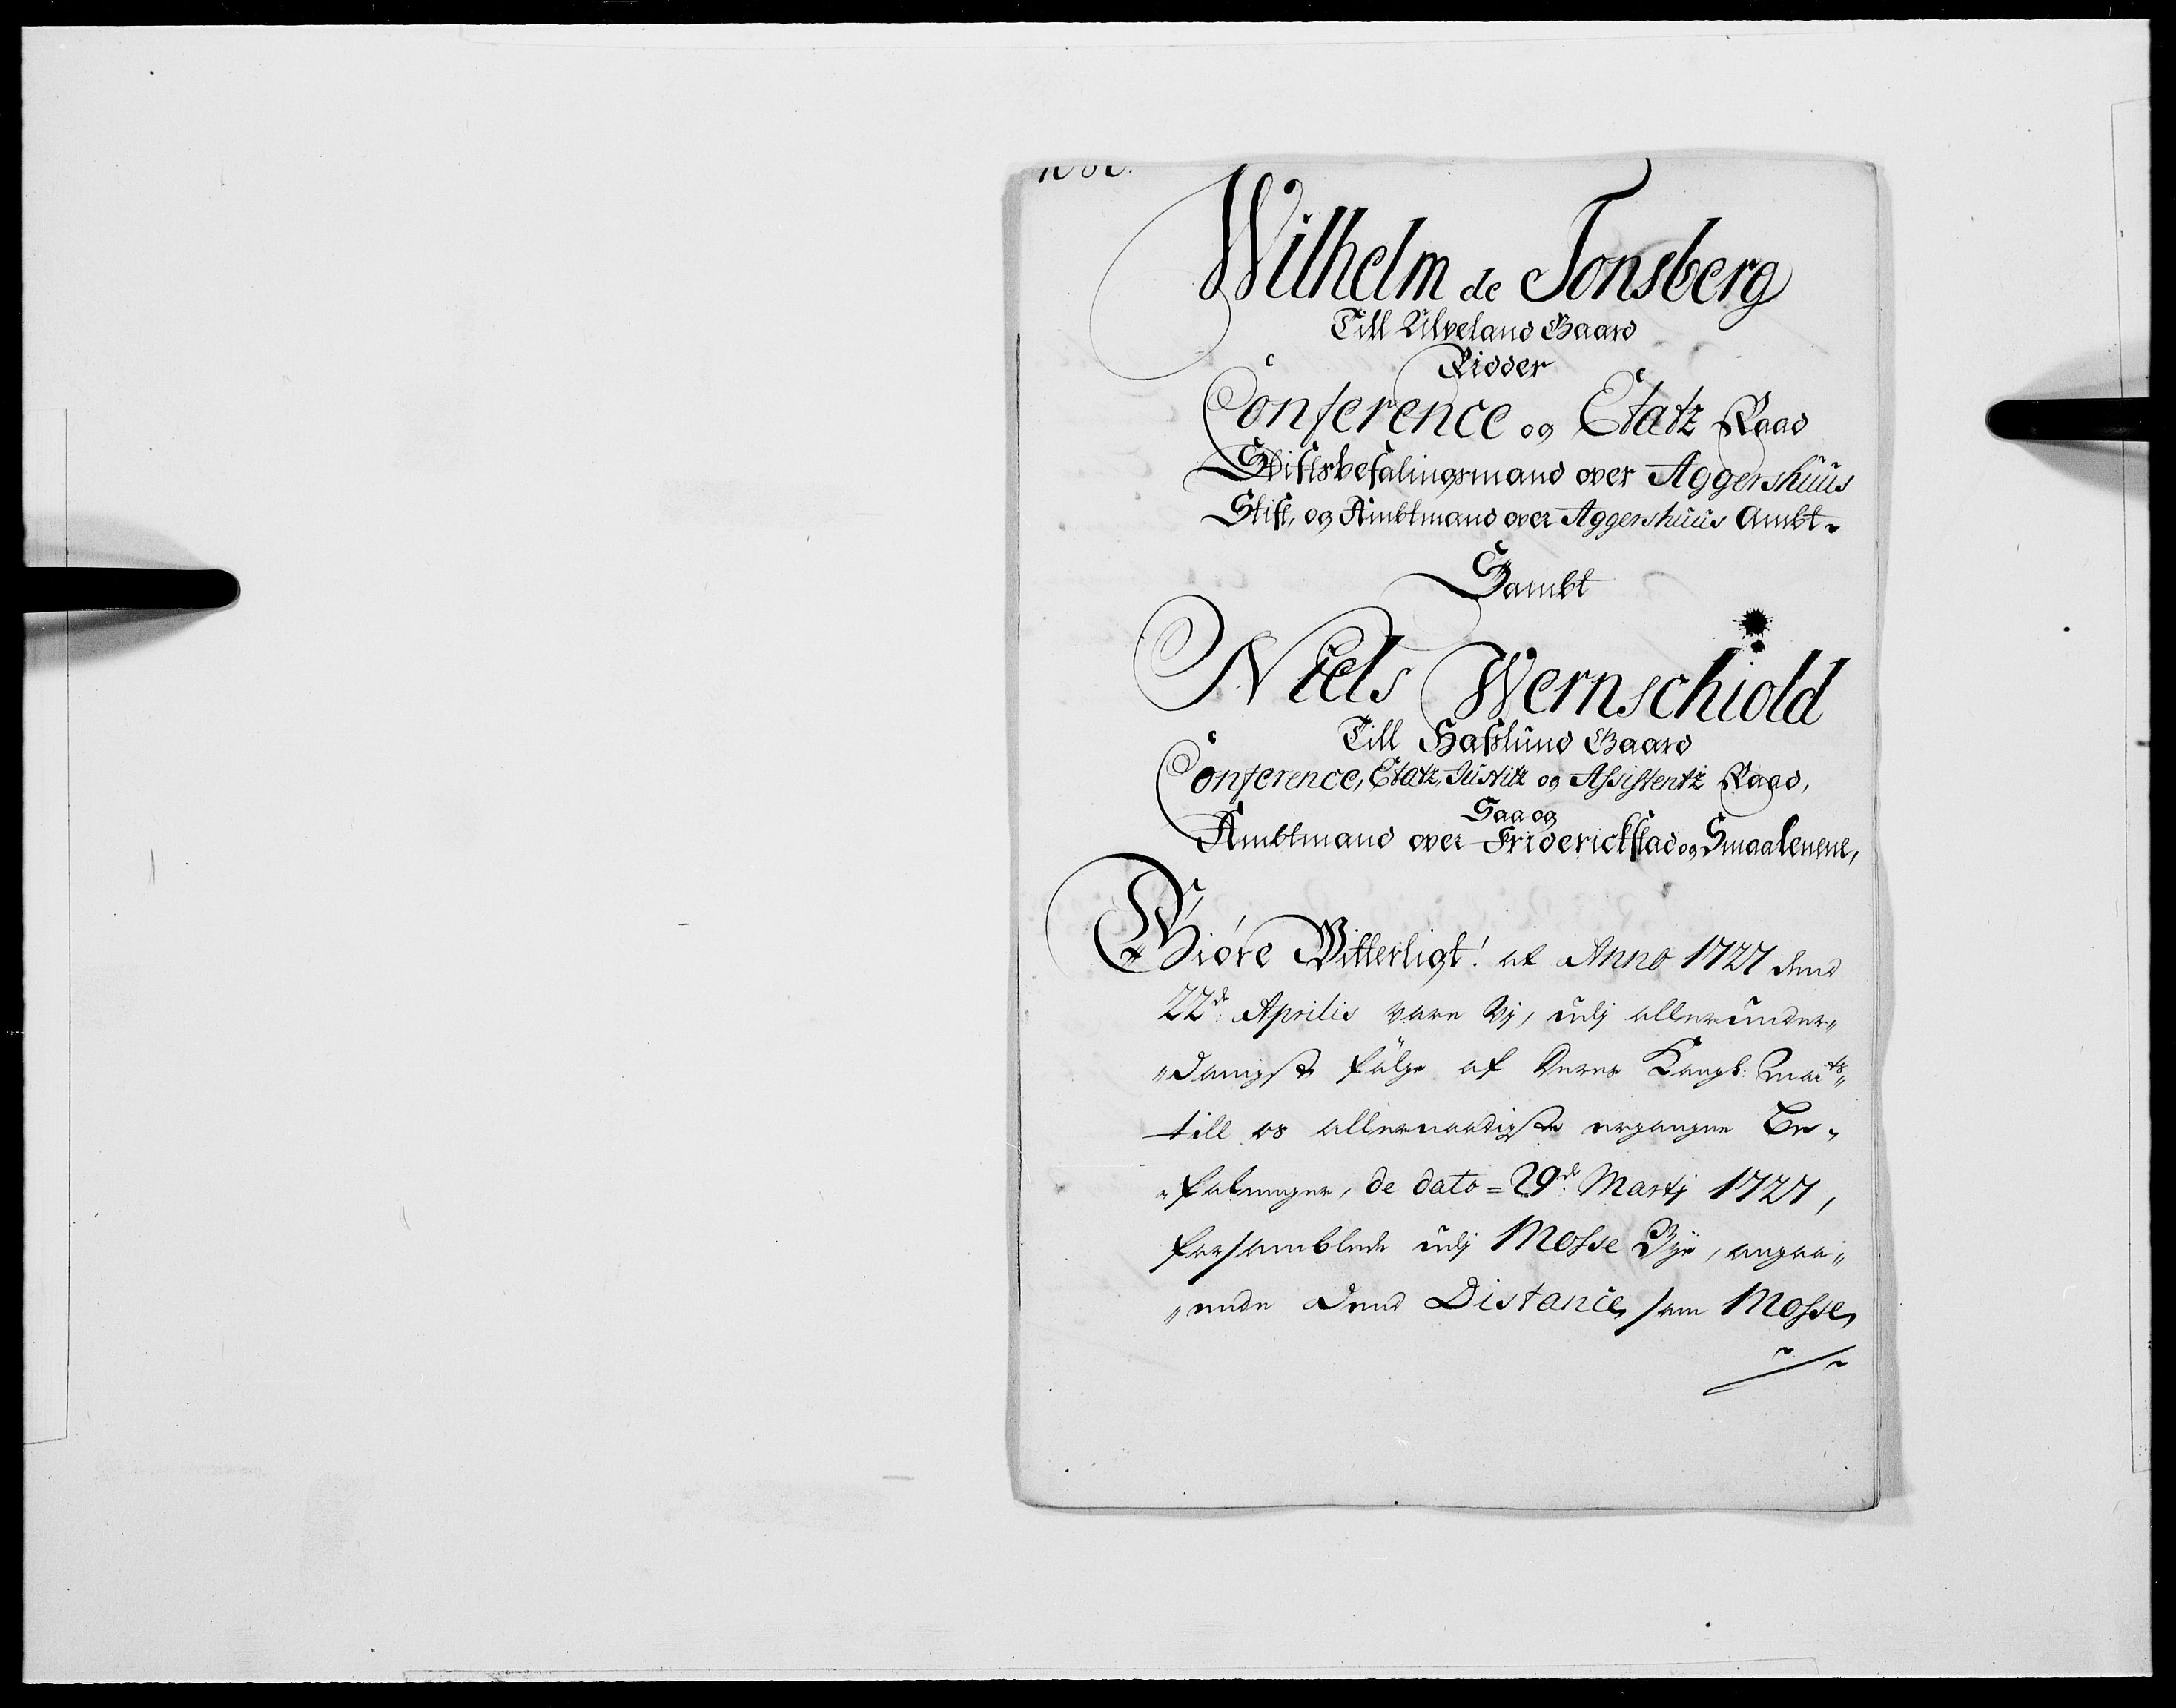 Wilhelm de Tonsberg
Till Ulveland Gaard
Ridder
Conference og Etatz Raad
Stiftsbefalingsmand over Aggershuus
Stift, og Ambtmand over Aggershuus Ambt.
Sambt
Niels Wernschiold
Till Hafslund Gaard
Conference, Etatz, Justitz og Assistentz Raad,
Saa og
Ambtmand over Friderichstad og Smaalenene,
Giöre Vitterligt! at Anno 1727 dend
22de Aprilis vare Vj, udj allerunder„
„danigste fölge af Deres Kongl: Maits„
till os allernaadigste ergangne Be„
„falninger, de dato = 29de Martj 1727,
forsamblede udj Mosse Bye, angaa„
„ende dend Distance, som Mosse,